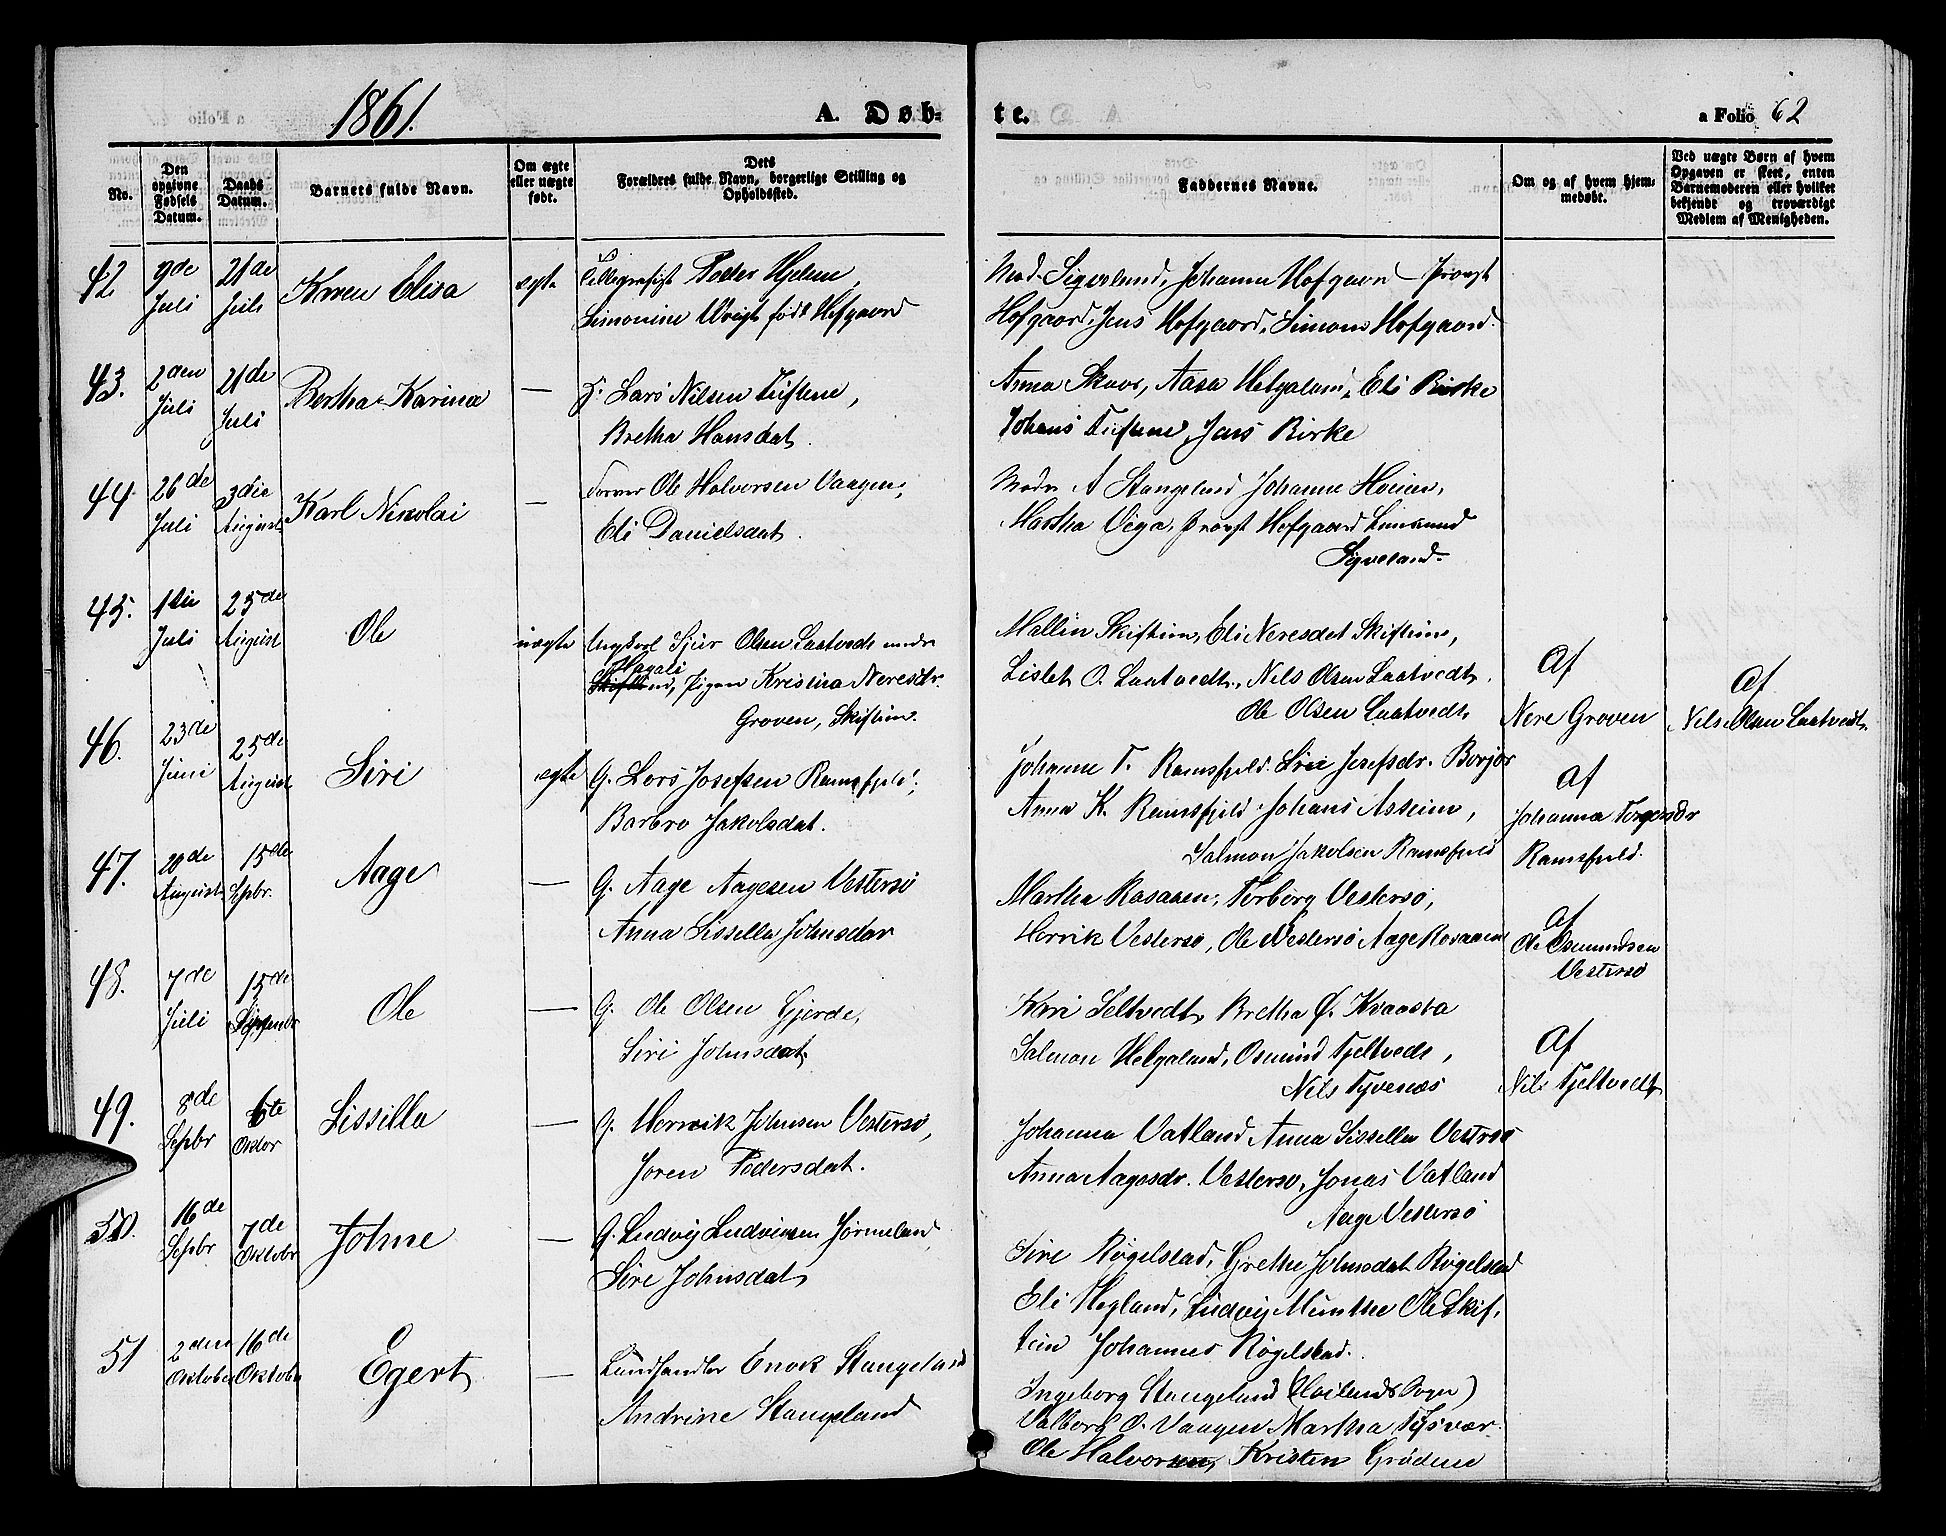 1861.
A. Døb-
te.
a Folio 62
No.
Den opgivne Fødsels Datum.
Daabs Datum.
Barnets fulde Navn.
Om ægte eller uægte født.
Dets Forældres fulde Navn, borgerlige Stilling og Opholdssted.
Faddernes Navne.
Om og af hvem hjemmedøbt.
Ved uægte Børn af hvem Opgaven er skeet, enten Barnemoderen eller hvilket bekjendt og troværdigt Medlem af Menigheden.
42 9de Juli 21de Juli Karen Elisa ægte Peder Hjelm,
Simonine født Hofgaard
Mad. Sigveland, Johanna Hofgaard Provst
Hofgaard, Jens Hofgaard, Simon Hofgaard.
43. 2den Juli 21de Juli Bertha Karina — Lars Nilsen Tuftene,
Bretha Hansdat.
Anna Skaar, Aasa Helgaland, Eli Birke
Johans Tuftene, Jens Birke
44. 26de Juli 3die August Karl Nikolai — Ole Halvorsen Vaagen,
Eli Danielsdat.
Madm A Stangeland Johanne Hoien,
Martha Viga, Provst Hofgaard
Sigveland.
45. 1ste Juli 25de August Ole uægte Ungkarl Sjur Olsen Laatvedt
Pigen Kristina Neresdr.
Groven, Skiftun.
Mallin Skiftun, Eli Neresdat Skiftun,
Lisbet O. Laatvedt, Nils Olsen Laatvedt.
Ole Olsen Laatvedt,
Af
Nere Groven
Af
Nils Olsen Laatvedt
46. 23de Juni 25de August Siri ægte G. Lars Josefsen Ramsfjeld,
Barbro Jakobsdat.
Johanne T. Ramsfjeld. Siri Josefsdr. Borjor
Anna K. Ramsfjeld Johans Asseim,
Salmon Jakobsen Ramsfjeld
Af
Johanna Torgersdr
Ramsfjeld.
47. 20de August 15de Sepbr. Aage — G. Aage Aagesen Vestersø
Anna Sissella Johnsdar
Martha Rosaaen, Torborg Vestersø,
Henrik Vestersø, Ole Vestersø Aage Rosaaen
af
Ole Osmundsen
Vestersø
48. 7de Juli 15de Ole — G. Ole Olsen Gjerde,
Siri Johnsdat.
Kari Seltvedt, Bretha Ø. Kraasta
Salmon Helgaland, Osmund Tjeltvedt,
Nils Tyvenæs
Af
Nils Tjeltvedt
49. 8de Sepbr 6te Oktor Sissilla — G. Henrik Johnsen Vestersø,
Joren Pedersdat.
Johanna Vatland Anna Sissella Vestersø
Anna Aagesdr. Vestersø, Jonas Vatland
Aage Vestersø
50. 16de Sepbr 7de Oktobr Johne — G. Ludvig Ludvigsen Jørmeland,
Siri Johnsdat,
Siri Røgelstad, Grethe Johnsdat Røgelstad
Eli Hegland, Ludvig Munthee Ole Skif-
tun Johannes Røgelstad.
51 2den Oktober 16de Oktober Egert — Landhandler Enok Stangeland
Andrine Stangeland
Ingeborg Stangeland (Sogn)
Valborg O. Vaagen Martha Tysvær.
Ole Halvorsen, Kristen Grødem